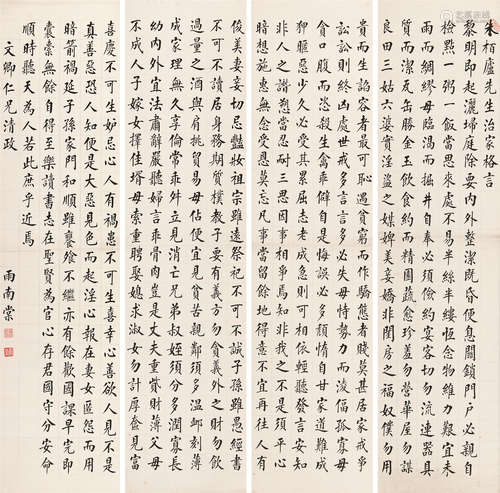 朱柏廬先生治家格言
黎明即起灑掃庭除要內外整潔既昏便息關鎖門戶必親自
檢點一粥一飯當思來處不易半絲半縷恆念物維力艱宜未
雨而綢繆毋臨渴而掘井自奉必須儉約宴客切勿流連器具
質而潔瓦缶勝金玉飲食約而精園蔬愈珍羞勿營華屋勿謀
良田三姑六婆實淫盜之媒婢美妾嬌非閨房之福奴僕勿用
貴而生諂容者最可恥遇貧窮而作驕態者賤莫甚居家戒爭
訟訟則終凶處世戒多言言多必失毋恃勢力而凌偪孤寡毋
貪口腹而恣殺生禽乖僻自是悔誤必多頹惰自甘家道難成
惡少久必受其累屈志老成相依輕聽發言安知
非人之譖愬當忍耐三思因事相爭焉知非我之不是須平心
暗想施惠無念受恩莫忘凡事當留餘地得意不宜再往人有
俊美妻妾切忌艷妝祖宗雖遠祭祀不可不誠子孫雖愚經書
不可不讀居身務期質樸教子要有義方勿貪意外之財勿飲
過量之酒與肩挑貿易毋佔便宜見貧苦親鄰須多溫卹刻薄
成家理無久享倫常乖舛立見消亡兄弟叔姪須分多潤寡長
幼內外宜法肅辭嚴聽婦言乖骨肉豈是丈夫重貲財薄父母
不成人子嫁女擇佳壻毋索重聘娶媳求淑女勿計厚奩見富
喜慶不可生妒忌心人有禍患不可生喜幸心善欲人見不是
真善惡恐人知便是大惡見色而起淫心報在妻女匿怨而用
暗箭禍延子孫家門和順雖饔飧不繼亦有餘歡國課早完即
囊橐無餘自得至樂讀書志在聖賢為官心存君國守分安命
順時聽天為人若此庶乎近焉
文卿仁兄清政
雨南棠